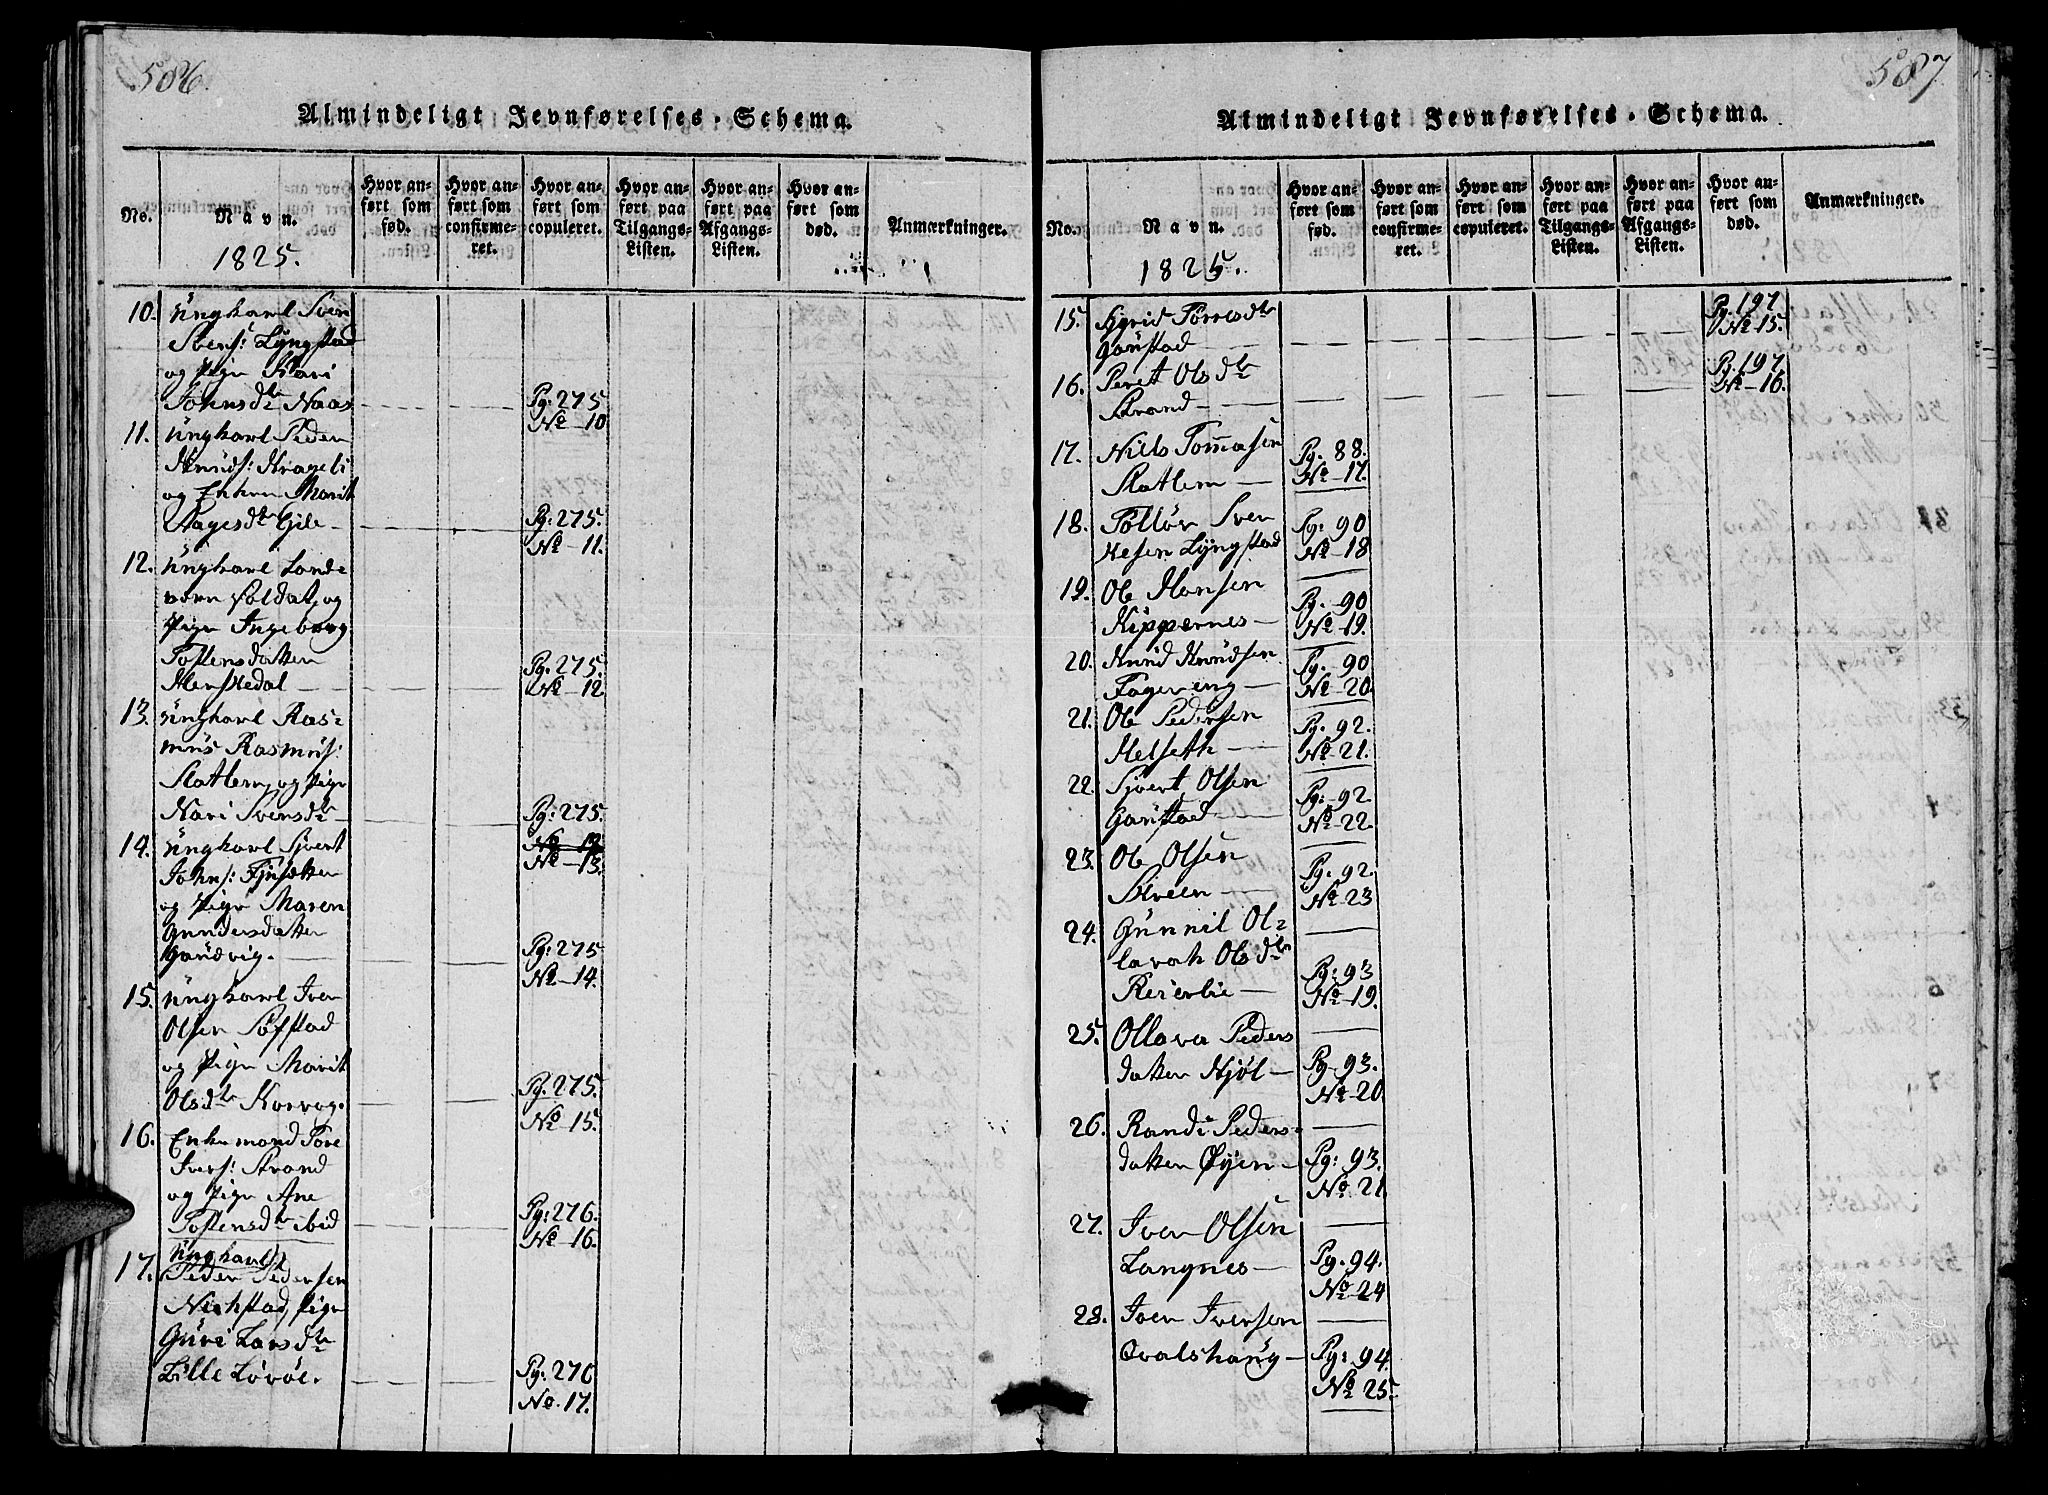 586.
Almindeligt Jevnførelses-Schema.
No.
Navn.
1825.
Hvor anført som fød.
Hvor anført som confirmeret.
Hvor anført som copuleret.
Hvor anført paa Tilgangs-Listen.
Hvor anført paa Afgangs-Listen.
Hvor anført som død.
Anmærkninger.
10. Ungkarl Sven
Svens: Lyngstad
og Pige Kari
Johnsdtr Naas Pg: 275
No 10
11. Ungkarl Peder
Knuds: Krageli
og Enken Marit
Aagesdtr Gile Pg: 275.
No 11.
12. Ungkarl Lande
vern Soldat, og
Pige Ingeborg
Tostensdatter
Henskedal Pg: 275.
No 12
13. Ungkarl Ras-
mus Rasmus:
Slatlem, og Pige
Kari Svensdtr Pg: 275.
No 13
No 13.
14. Ungkarl Sjvert
Johns: Fjusætter
og Pige Maren
Gundersdatter
Gaudvig. Pg: 275
No 14.
15. Ungkarl Iver
Olsen Søfstad
og Pige Marit
Olsdtr Korvog. Pg. 275.
No 15.
16. Enkemand Tore
Ivers: Strand
og Pige Ane
Tostensdtr ibid Pg: 276.
No 16.
Ungkarl
17. Peder Pedersen
Nerhstad, Pige
Guri Larsdtr
Lille Løvøe. Pg: 276
No. 17.
587
Almindeligt Jevnførelses-Schema.
No.
Navn.
1825.
Hvor anført som fød.
Hvor anført som confirmeret.
Hvor anført som copuleret.
Hvor anført paa Tilgangs-Listen.
Hvor anført paa Afgangs-Listen.
Hvor anført som død.
Anmærkninger.
15. Sigrid Torresdtr Pg. 197
Garstad No 15.
16. Peret Olsdtr Pg. 197
Strand No 16.
17. Niels Tommasen Pg. 88.
Slatlem No 17.
18. Tolløv Sven Pg: 90
Nesen Lyngstad No 18
19. Ole Hansen Pg. 90
Kippernes No 19.
20. Knud Knudsen Pg. 90
Fagereng No 20.
21. Ole Pedersen Pg. 92.
Helseth No 21.
22. Sjvert Olsen Pg: 92.
Garstad No 22.
23. Ole Olsen Pg. 92.
Streen No 23
24. Gunnil Ol-
lavah Olsdtr Pg: 93
Reierlie No 19.
25. Ollava Peders
datter Hjøl Pg. 93.
No 20
26. Randi Peders-
datter Øyen Pg: 93.
No. 21
27. Iver Olsen
Langnes Pg. 94.
No 24
28. Iver Iversen
Ovalshaug Pg: 94.
No 25.